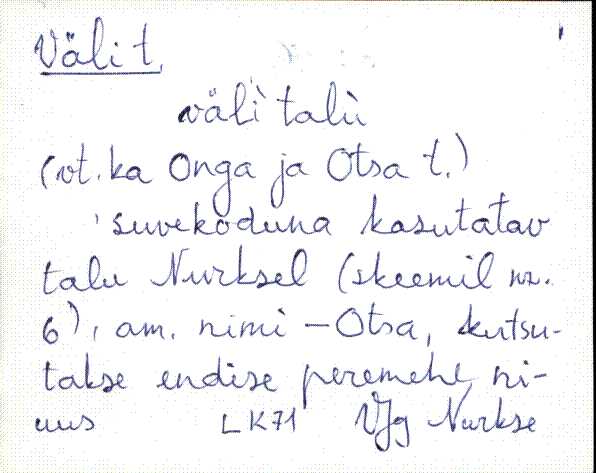 Väli t.
väli talu
(vt. ka Onga ja Otsa t.)
suvekoduna kasutatav
talu Nurksel (skeemil nr.
6), am. nimi – Otsa, kutsu-
takse endise peremehe ni-
mes LK71 VJg Nurkse